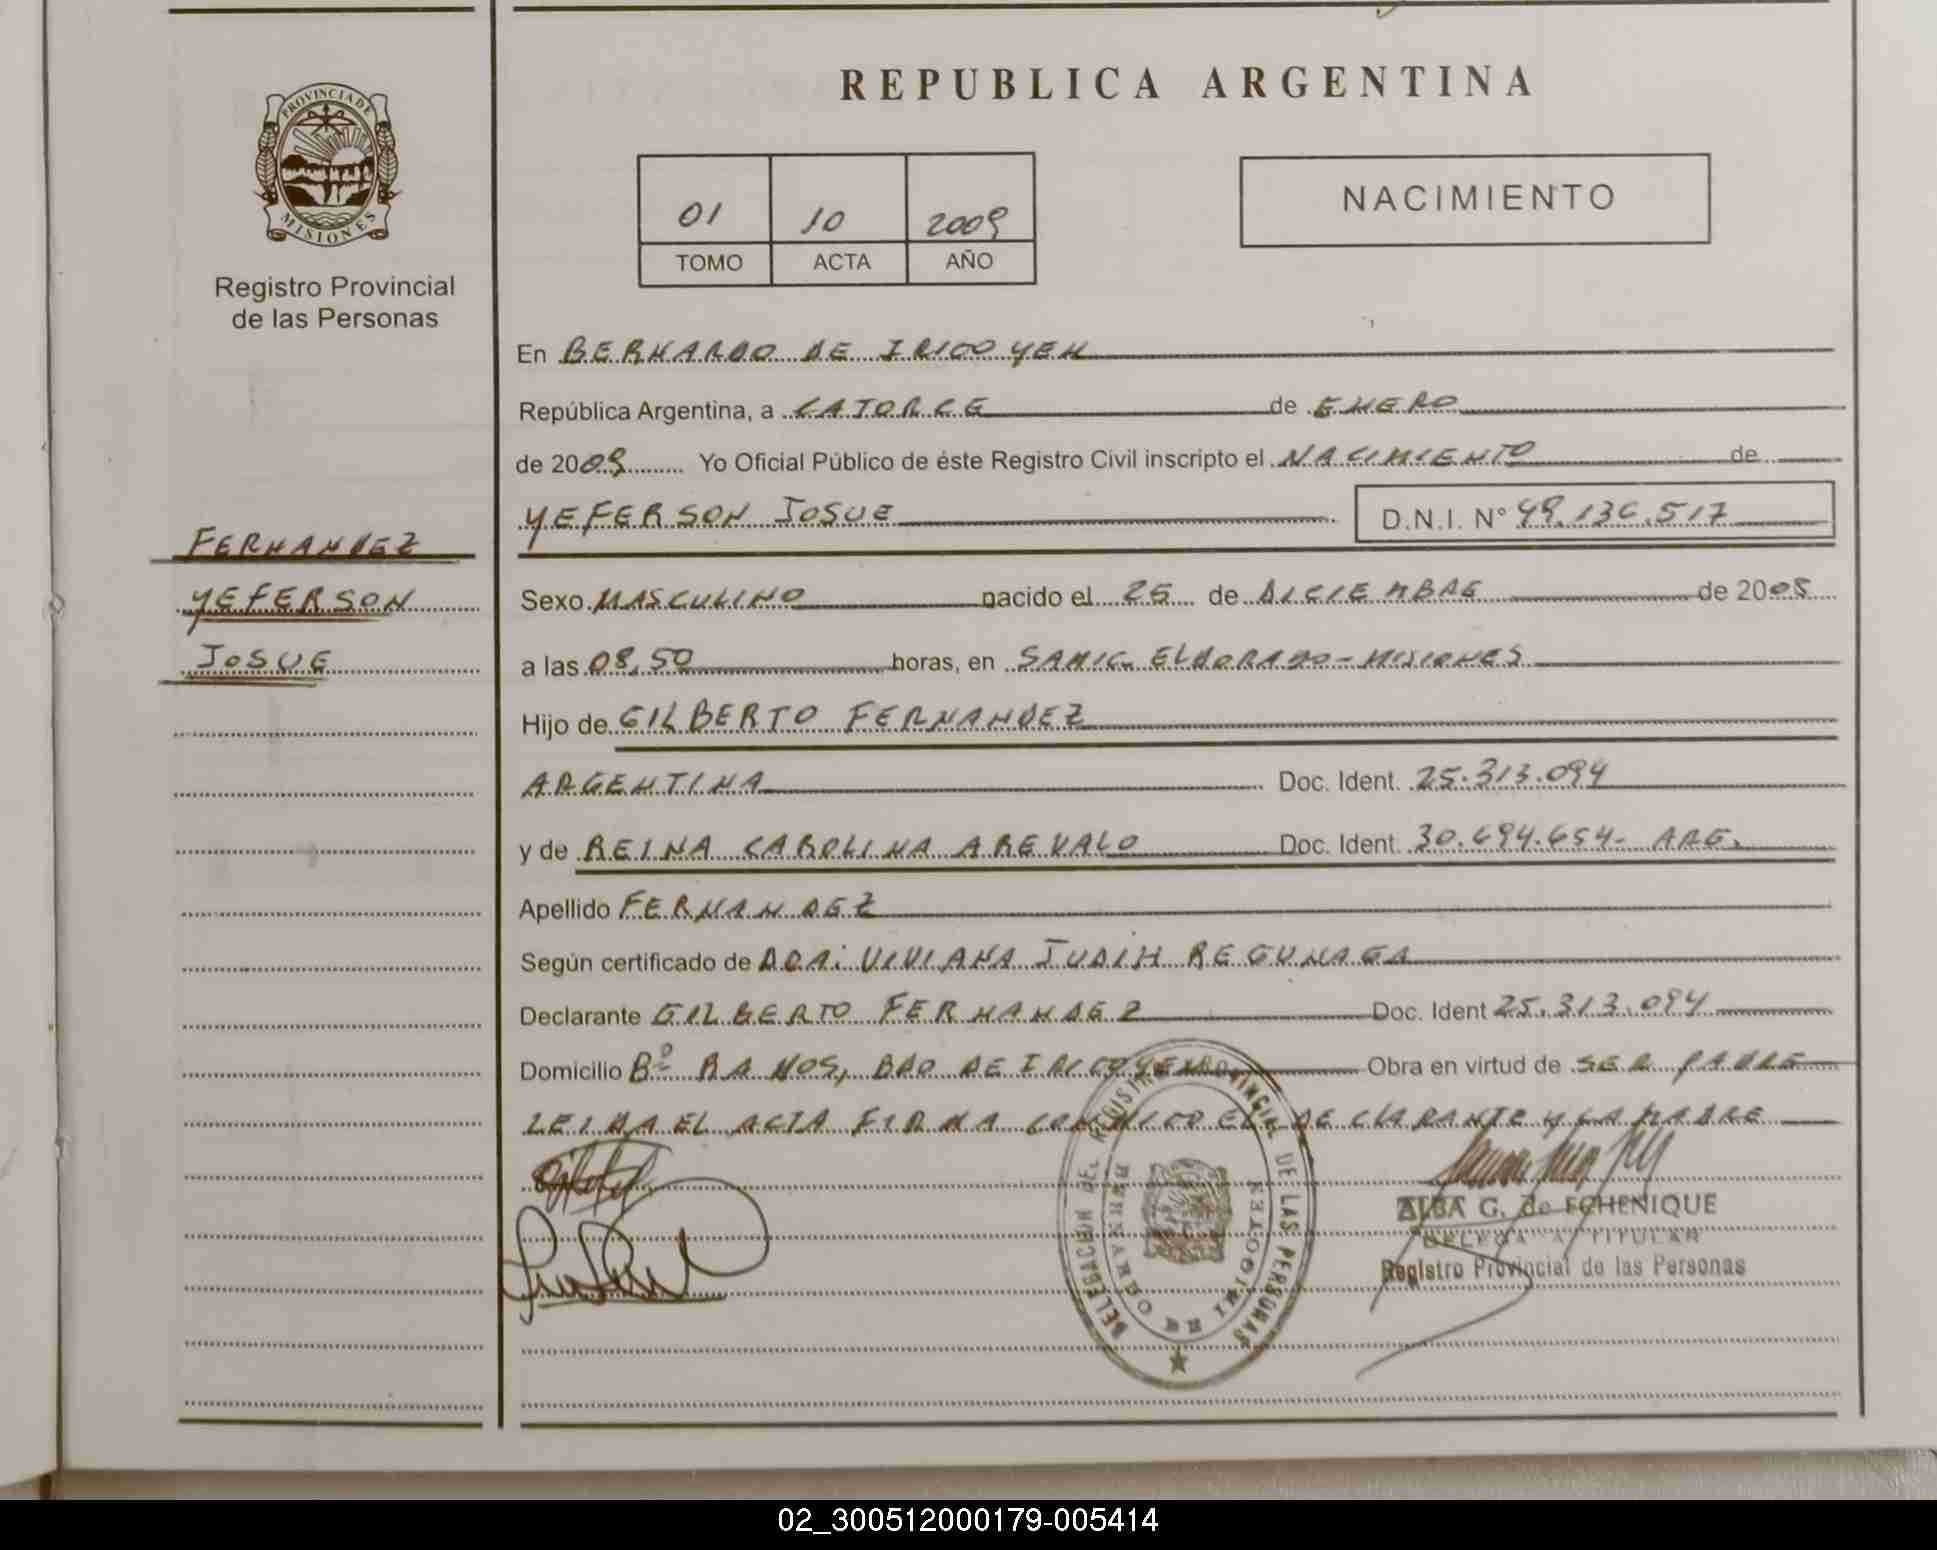 REPUBLICA ARGENTINA
PROVINCIA DE
MISIONES
Registro Provincial
de las Personas
01 10 2009
TOMO ACTA AÑO
NACIMIENTO
En BERNARDO DE IRIGOYEN
República Argentina, a CATORCE de ENERO
de 2009 Yo Oficial Público de éste Registro Civil inscripto el NACIMIENTO de
YEFERSON JOSUE D.N.I. N° 49.136.517
FERNANDEZ
YEFERSON
JOSUE
Sexo MASCULINO nacido el 25 de DICIEMBRE de 2008
a las 08,50 horas, en SAMIC ELDORADO - MISIONES
Hijo de GILBERTO FERNANDEZ
ARGENTINA Doc. Ident. 25.313.094
y de REINA CAROLINA AREVALO Doc. Ident. 30.694.654- ARG.
Apellido FERNANDEZ
Según certificado de DRA: VIVIANA JUDIH REGUNAGA
Declarante GILBERTO FERNANDEZ Doc. Ident 25.313.094
Domicilio Bº RAMOS, BDO DE IRIGOYEN Obra en virtud de SER PADRE
LEIDA EL ACTA FIRMA CONMIGO EL DECLARANTE Y LA MADRE
DELEGACION DEL REGISTRO PROVINCIAL DE LAS PERSONAS
BERNARDO DE IRIGOYEN
ALBA G. de ECHENIQUE
DELEGADA TITULAR
Registro Provincial de las Personas
02_300512000179-005414